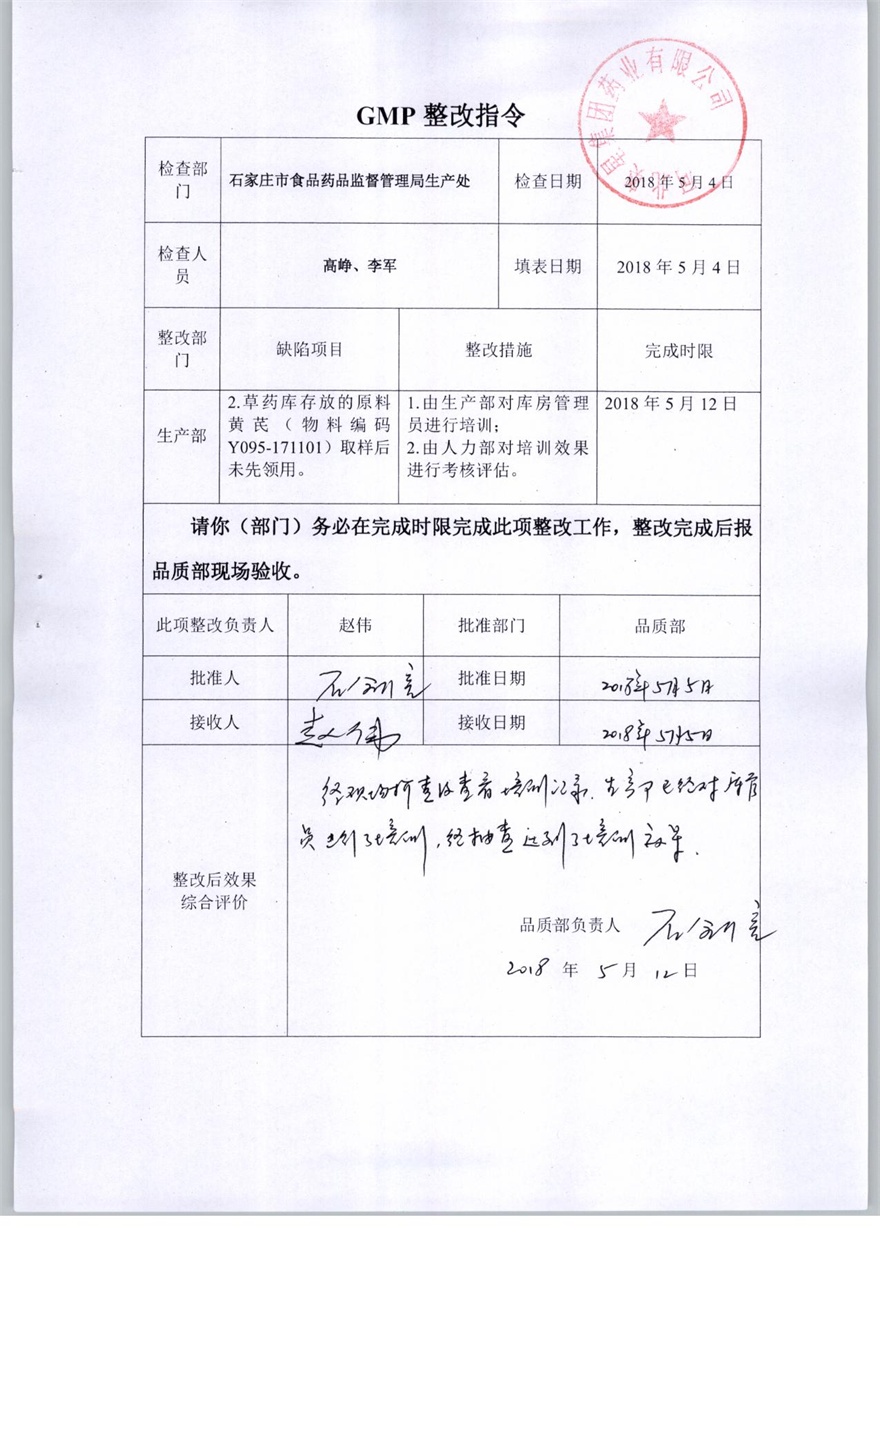 集团药业有限公司
GMP 整改指令
检查部门
石家庄市食品药品监督管理局生产处
检查日期
2018 年 5 月 4 日
检查人员
高峥、李军
填表日期
2018 年 5 月 4 日
整改部门
缺陷项目
整改措施
完成时限
生产部
2.草药库存放的原料
黄芪（物料编码
Y095-171101）取样后
未先领用。
1.由生产部对库房管理
员进行培训；
2.由人力部对培训效果
进行考核评估。
2018 年 5 月 12 日
请你（部门）务必在完成时限完成此项整改工作，整改完成后报
品质部现场验收。
此项整改负责人
赵伟
批准部门
品质部
批准人
批准日期
2018年5月5日
接收人
赵伟
接收日期
2018年5月5日
整改后效果
综合评价
经现场检查及查看培训记录，生产部已经对库管
员进行了培训，经抽查达到了培训效果。
品质部负责人
2018 年 5 月 12 日